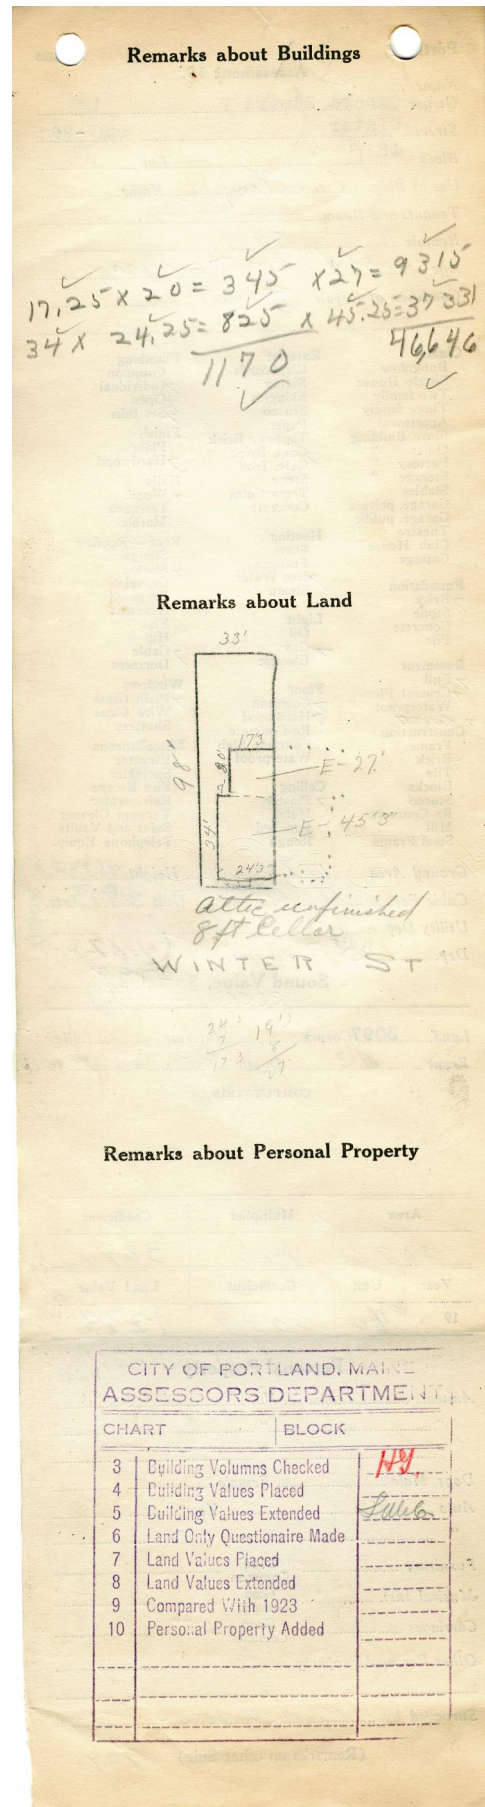 Remarks about Buildings
17.25 x 20 = 345 x 27 = 9315
34 x 24.25 = 825 x 45.25 = 37331
1170 46,646
Remarks about Land
33'
98'
17'3
20'
E - 27'
34'
E - 45'3"
24'3
attic unfinished
8 ft Cellar
WINTER ST
24'3 19'3
7 8
17'3 27
Remarks about Personal Property
CITY OF PORTLAND, MAINE
ASSESSORS DEPARTMENT
CHART BLOCK
3 Building Volumns Checked
4 Building Values Placed
5 Building Values Extended
6 Land Only Questionaire Made
7 Land Values Placed
8 Land Values Extended
9 Compared With 1923
10 Personal Property Added